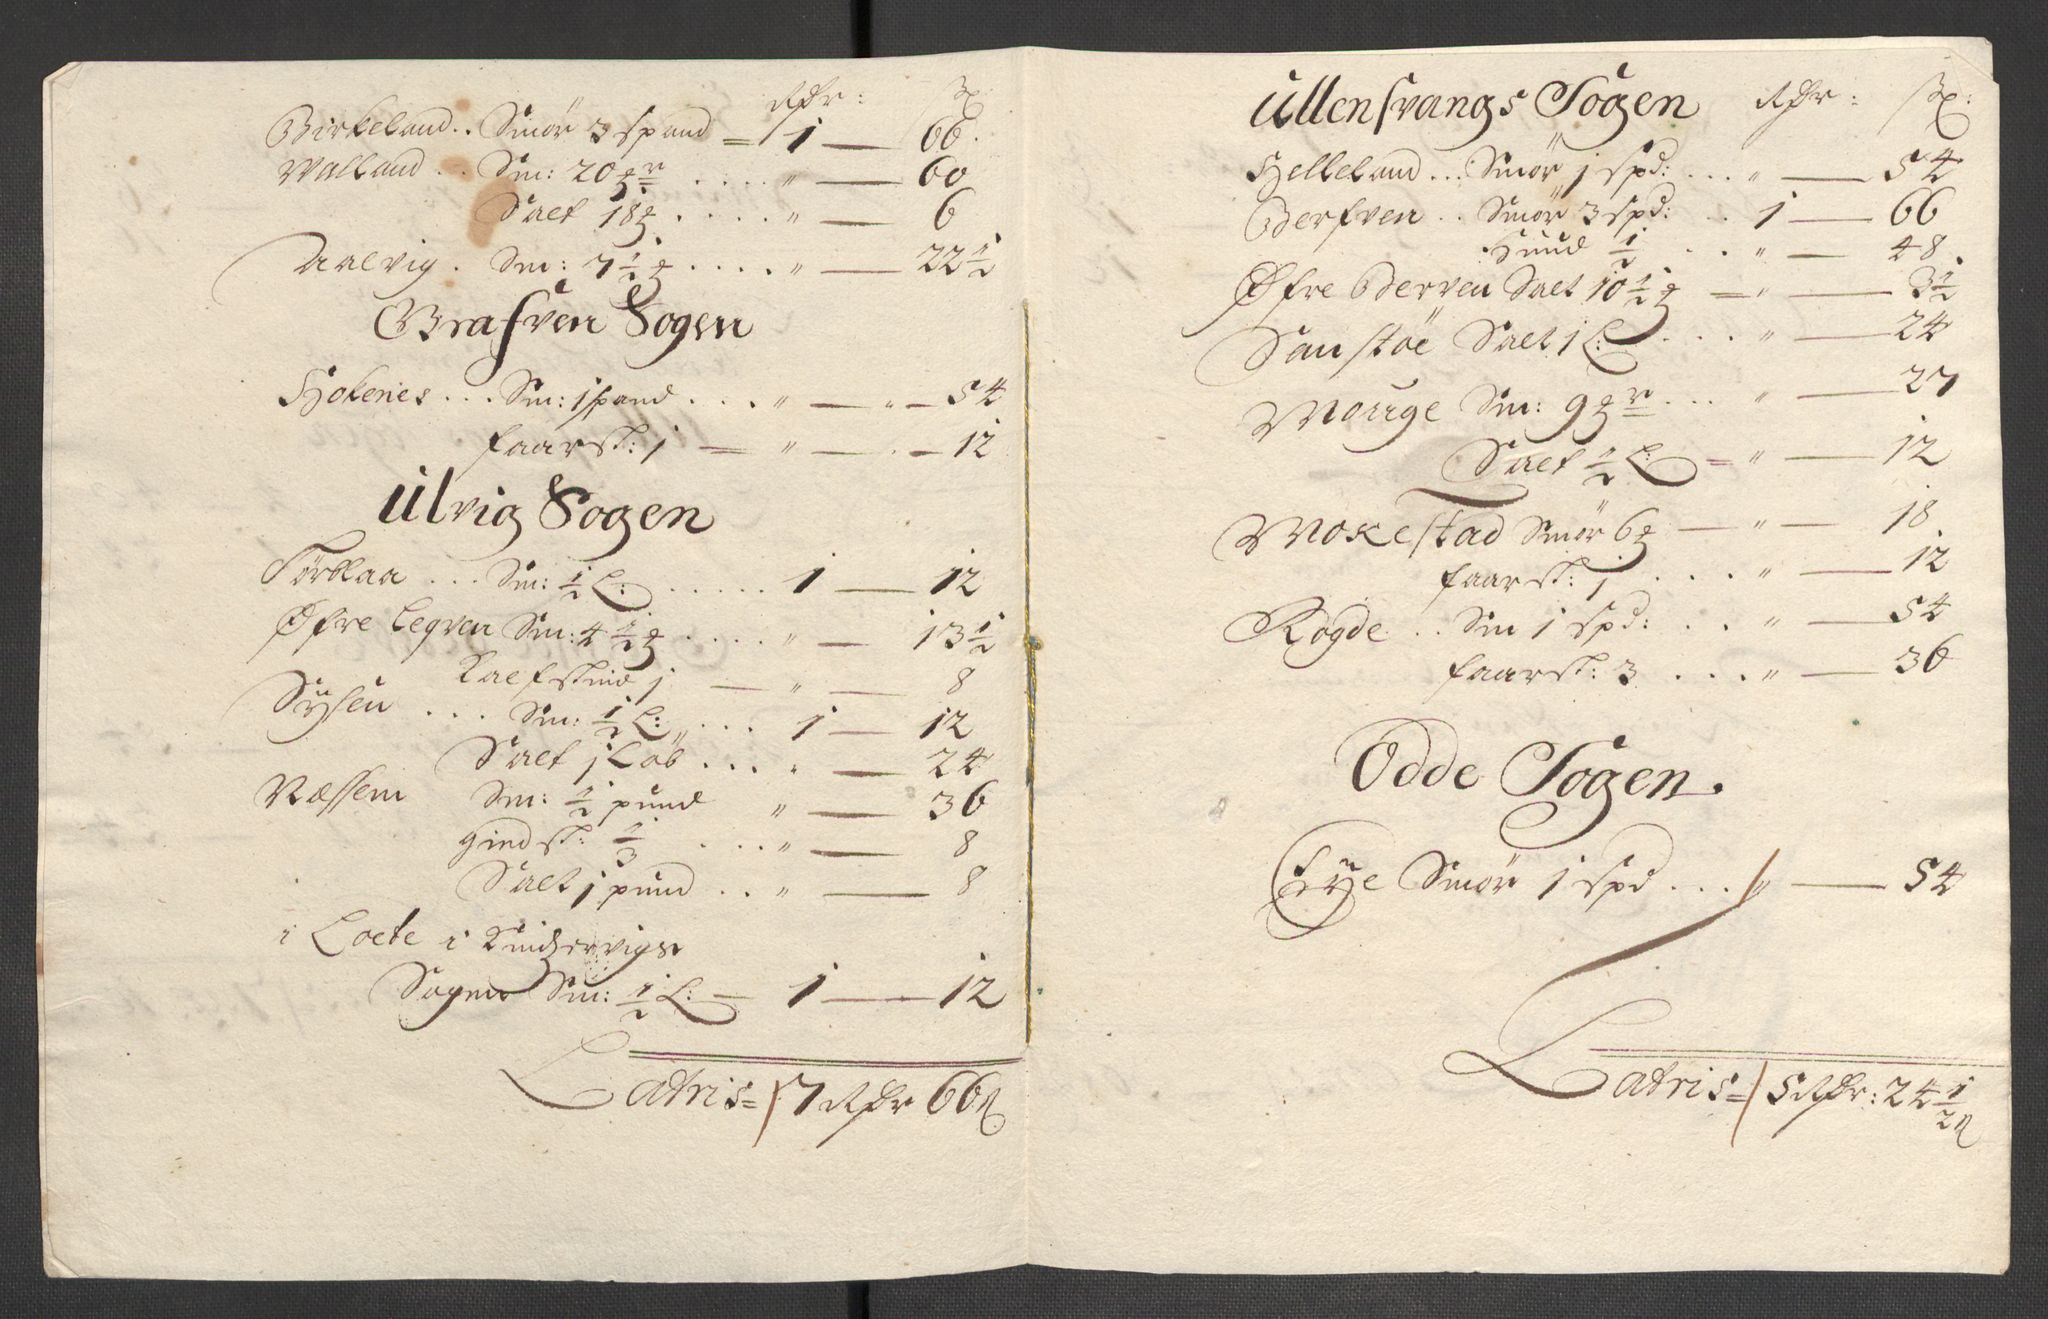 Rdr: ß
Birkeland .. Smör 3 spand = 1 — 66.
Walland .. Sm: 20 mr .... " — 60
Salt 18 m .... " — 6
Aalvig . Sm: 7 1/2 m .... " — 22 1/2
Grafven Sogen
Hokenes ... Sm: 1 spand ... " — " — 54
faarsk: j = " — . — 12
Ulvig Sogen
Torblaa ... Sm: 1/2 L: ..... 1 — 12
Øfre Leqven Sm: 4 1/2 m .... " — 13 1/2
Kalfskind j — " — 8
Sysen ... Sm: 1/2 L: ... 1 — 12
Salt j Löb ... " — 24
Næssem Sm: 1/2 pund " — 36
Giedsk: 2/3 ... " — 8
Salt j pund .. " — 8
i Loete i Kindzervigs
Sogen Sm: 1/2 L: — 1 — 12
Latris = 7 Rdr 66 ß
Ullensvangs Sogen Rdr: ß:
Helleland ... Smör j spd: ... " — 54
Berfven .. Smör 3 spd: .. 1 — 66
Huud 1/2 .. " — 48.
Øfre Berven Salt 10 1/2 m = " — 3 1/2
Sanstöe Salt j L: ... " — 24
Mouge Sm: 9 mr ... " — 27
Salt 1/2 L: = " — 12
Mokestad Smör 6 m — " — 18.
faarsk: j .... " — 12
Rogde .. Sm 1 spd: .. " — 54
faarsk: 3 .... " — 36
Odde Sogen.
Eye Smör 1 spd ... " — 54
Latris = 5 Rdr: 24 1/2 ß